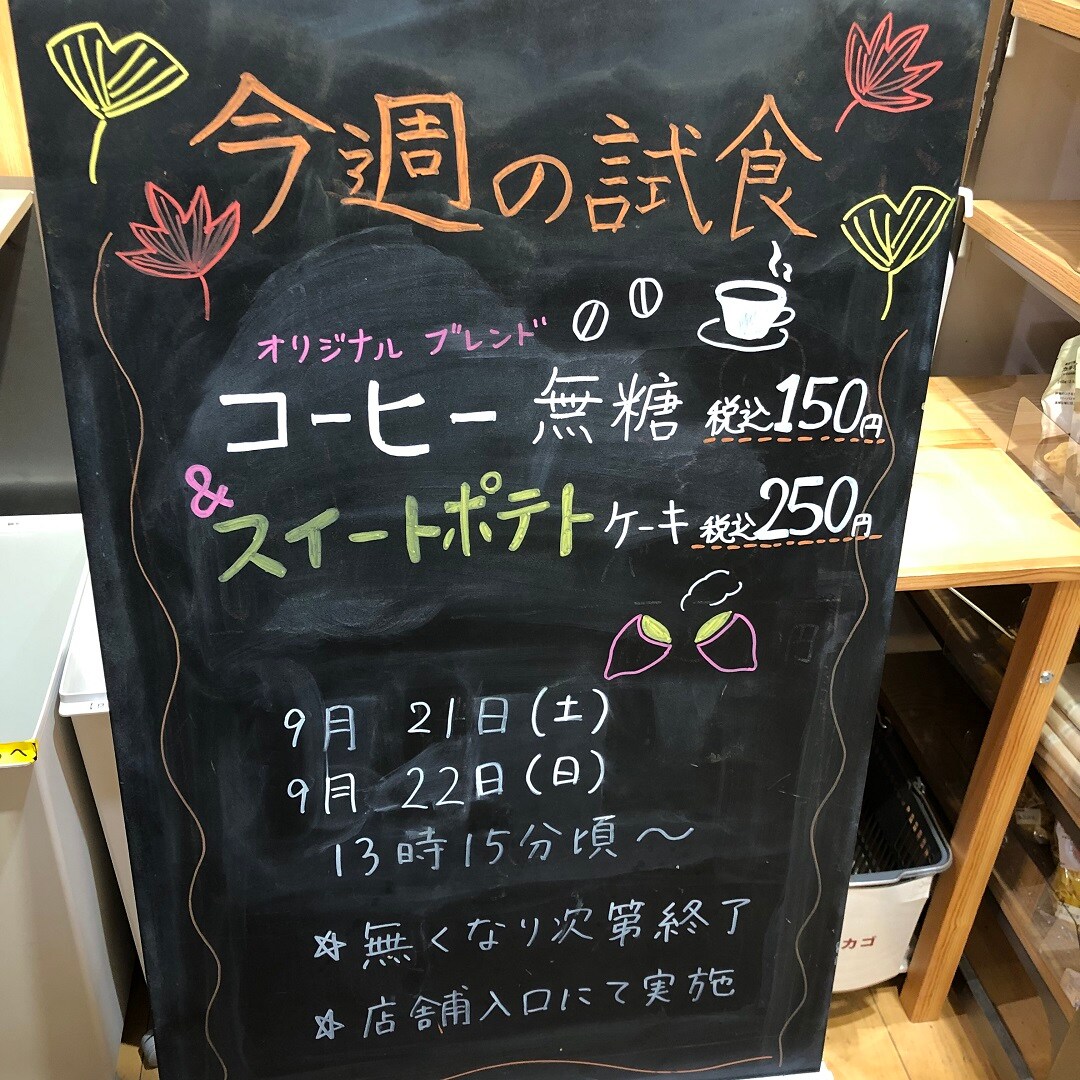 今週の試食
オリジナル ブレンド
コーヒー 無糖 税込150円
&
スイートポテトケーキ 税込250円
9月 21日(土)
9月 22日(日)
13時15分頃〜
☆無くなり次第終了
☆店舗入口にて実施
カゴ